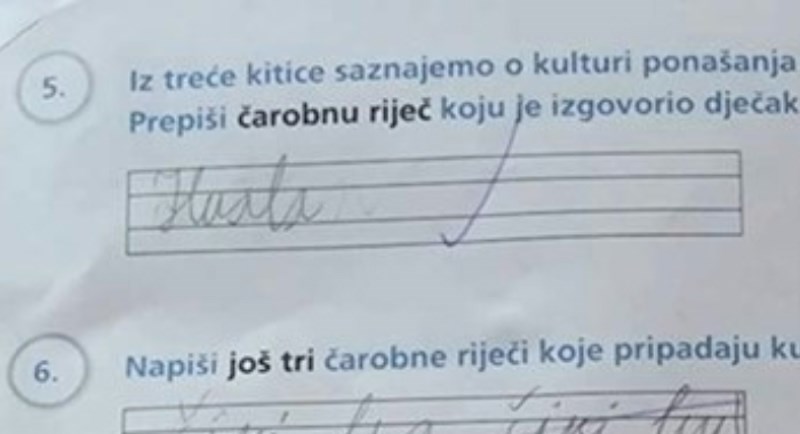 5. Iz treće kitice saznajemo o kulturi ponašanja
Prepiši čarobnu riječ koju je izgovorio dječak
Hvala
6. Napiši još tri čarobne riječi koje pripadaju ku